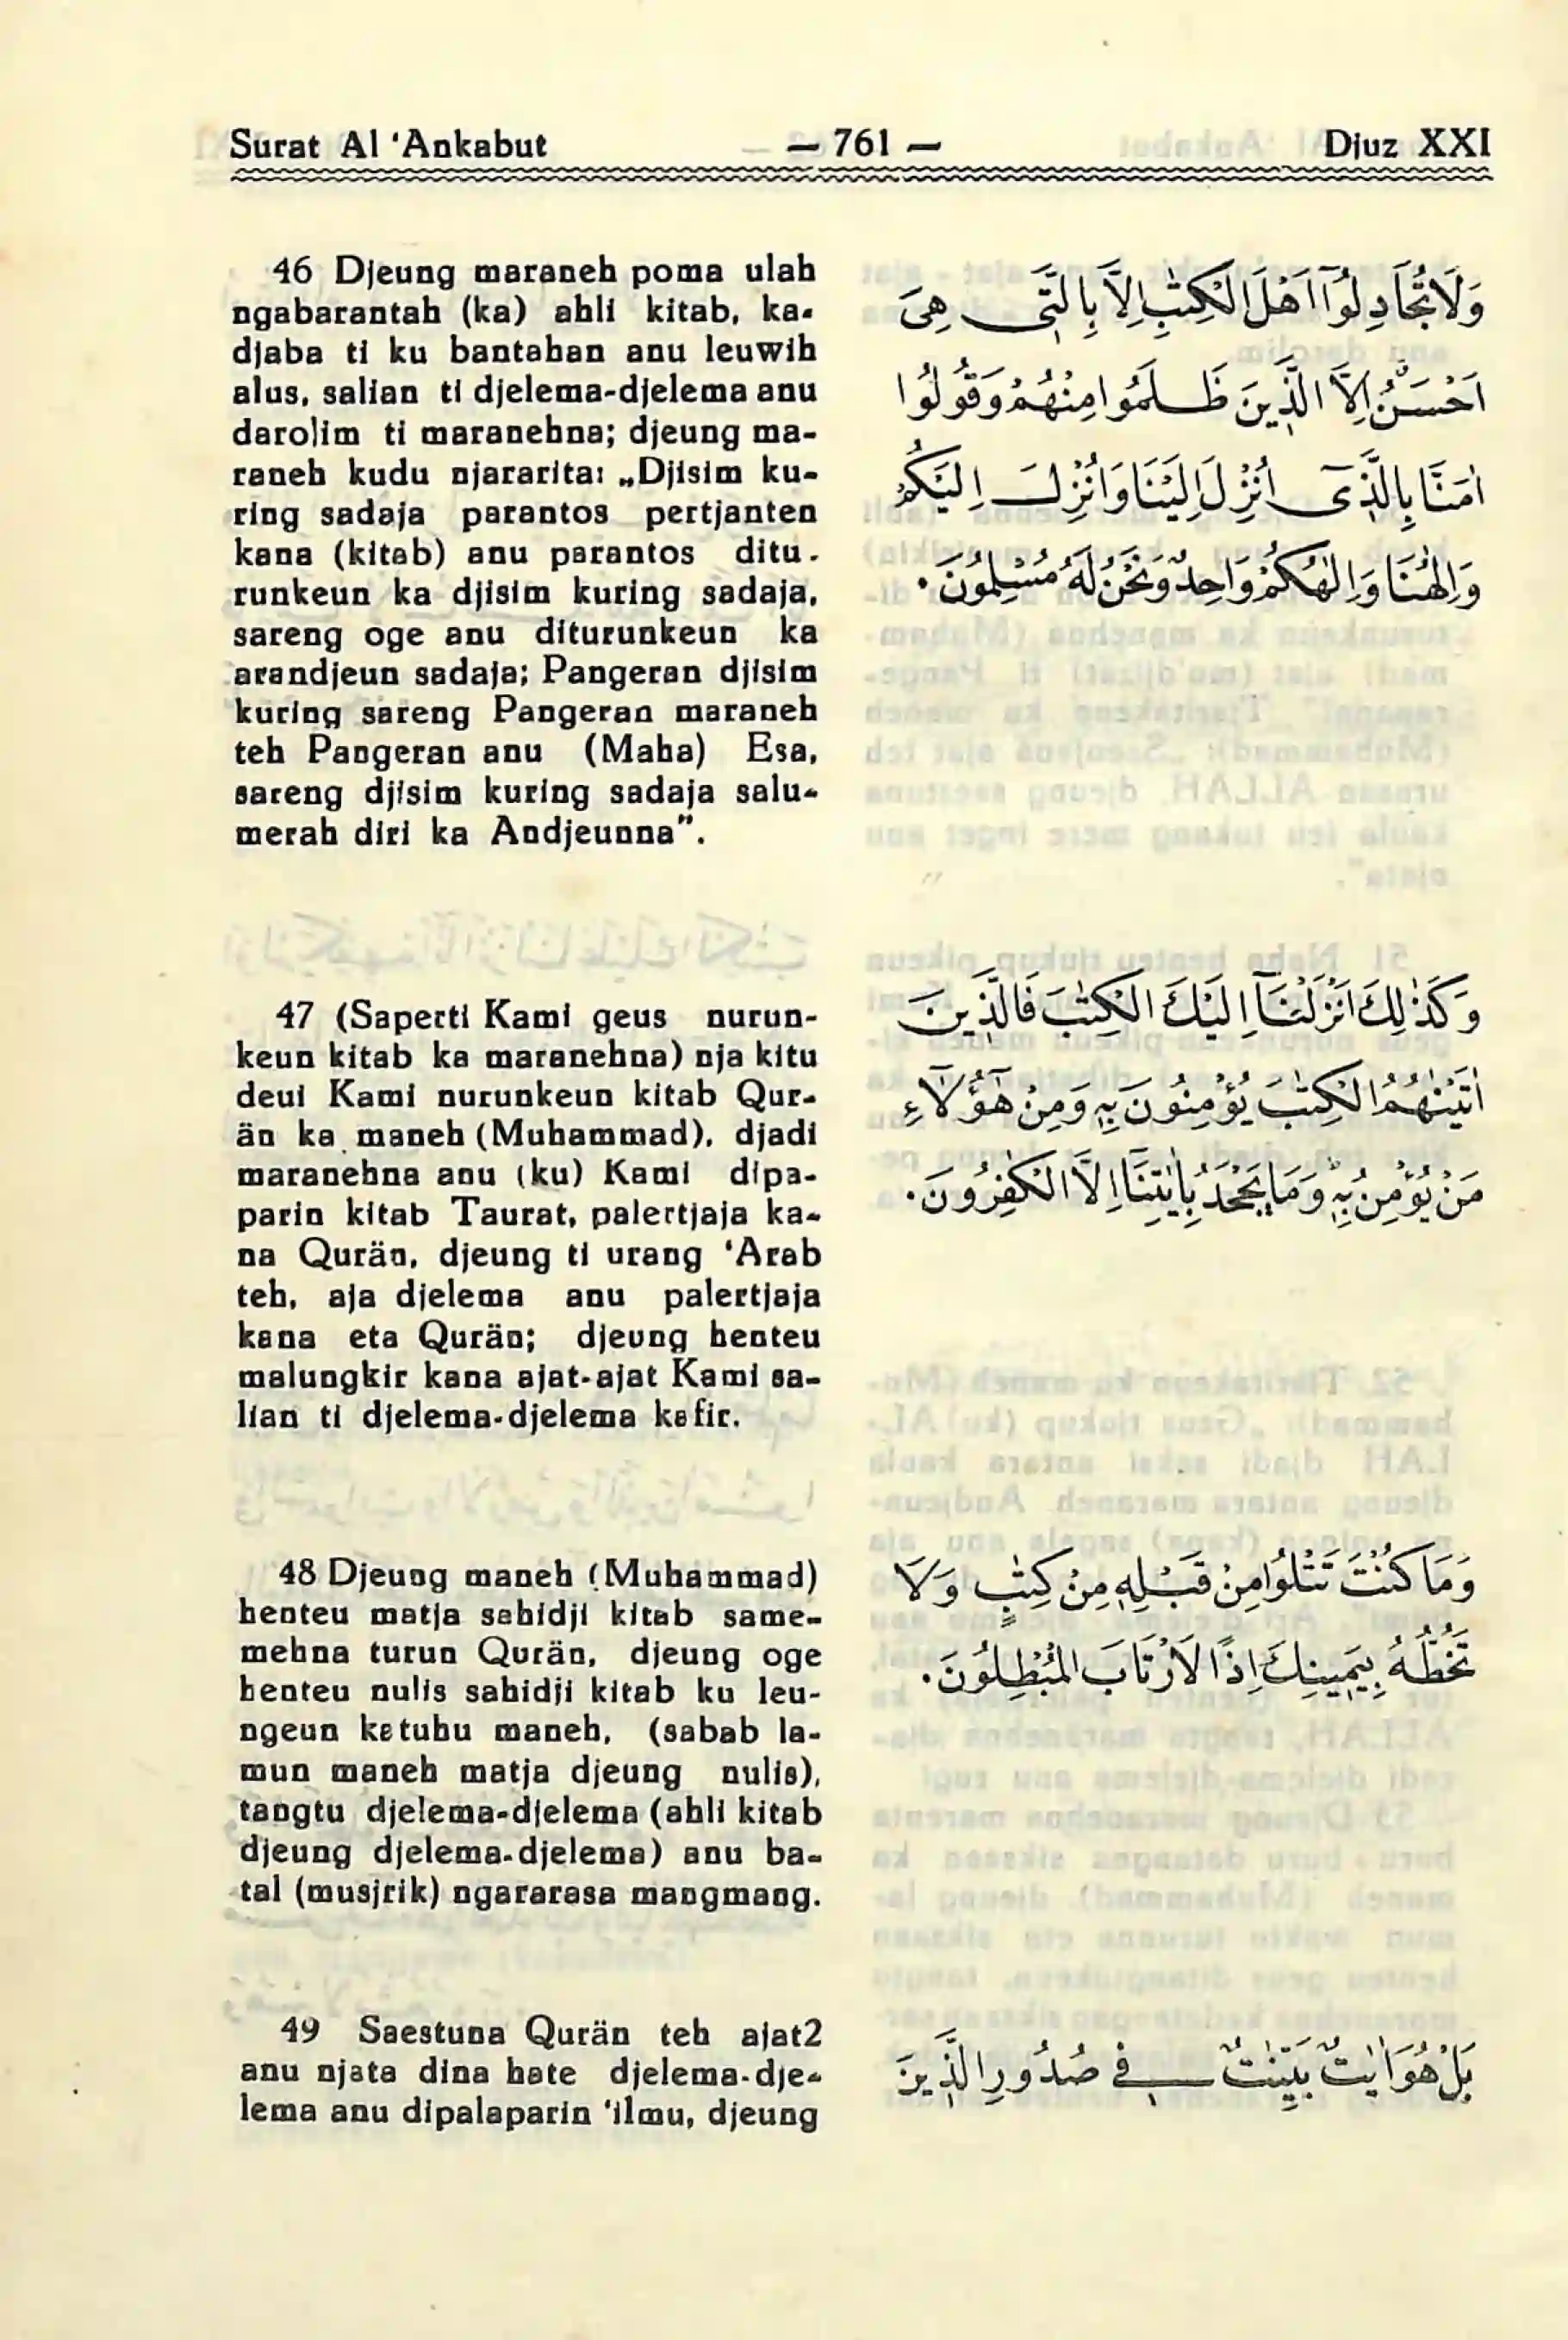 Surat Al 'Ankabut — 761 — Djuz XXI
46 Djeung maraneh poma ulah
ngabarantah (ka) ahli kitab, ka-
djaba ti ku bantahan anu leuwih
alus, salian ti djelema-djelema anu
darolim ti maranehna; djeung ma-
raneh kudu njararita: „Djisim ku-
ring sadaja parantos pertjanten
kana (kitab) anu parantos ditu-
runkeun ka djisim kuring sadaja,
sareng oge anu diturunkeun ka
arandjeun sadaja; Pangeran djisim
kuring sareng Pangeran maraneh
teh Pangeran anu (Maha) Esa,
sareng djisim kuring sadaja salu-
merah diri ka Andjeunna".
وَلَا تُجَادِلُوْٓا اَهْلَ الْكِتٰبِ اِلَّا بِالَّتِيْ هِىَ
اَحْسَنُ اِلَّا الَّذِيْنَ ظَلَمُوْا مِنْهُمْ وَقُوْلُوْٓا
اٰمَنَّا بِالَّذِيْٓ اُنْزِلَ اِلَيْنَا وَاُنْزِلَ اِلَيْكُمْ
وَاِلٰهُنَا وَاِلٰهُكُمْ وَاحِدٌ وَّنَحْنُ لَهٗ مُسْلِمُوْنَ ۰
47 (Saperti Kami geus nurun-
keun kitab ka maranehna) nja kitu
deui Kami nurunkeun kitab Qur-
än ka maneh (Muhammad), djadi
maranehna anu (ku) Kami dipa-
parin kitab Taurat, palertjaja ka-
na Qurän, djeung ti urang 'Arab
teh, aja djelema anu palertjaja
kana eta Qurän; djeung henteu
malungkir kana ajat-ajat Kami sa-
lian ti djelema-djelema kafir.
وَكَذٰلِكَ اَنْزَلْنَآ اِلَيْكَ الْكِتٰبَ فَالَّذِيْنَ
اٰتَيْنٰهُمُ الْكِتٰبَ يُؤْمِنُوْنَ بِهٖ وَمِنْ هٰٓؤُلَآءِ
مَنْ يُّؤْمِنُ بِهٖ وَمَا يَجْحَدُ بِاٰيٰتِنَآ اِلَّا الْكٰفِرُوْنَ ۰
48 Djeung maneh (Muhammad)
henteu matja sahidji kitab same-
mehna turun Qurän, djeung oge
henteu nulis sahidji kitab ku leu-
ngeun katuhu maneh, (sabab la-
mun maneh matja djeung nulis),
tangtu djelema-djelema (ahli kitab
djeung djelema-djelema) anu ba-
tal (musjrik) ngararasa mangmang.
وَمَا كُنْتَ تَتْلُوْا مِنْ قَبْلِهٖ مِنْ كِتٰبٍ وَلَا
تَخُطُّهٗ بِيَمِيْنِكَ اِذًا لَارْتَابَ الْمُبْطِلُوْنَ ۰
49 Saestuna Qurän teh ajat2
anu njata dina hate djelema-dje-
lema anu dipalaparin 'ilmu, djeung
بَلْ هُوَ اٰيٰتٌ بَيِّنٰتٌ فِيْ صُدُوْرِ الَّذِيْنَ